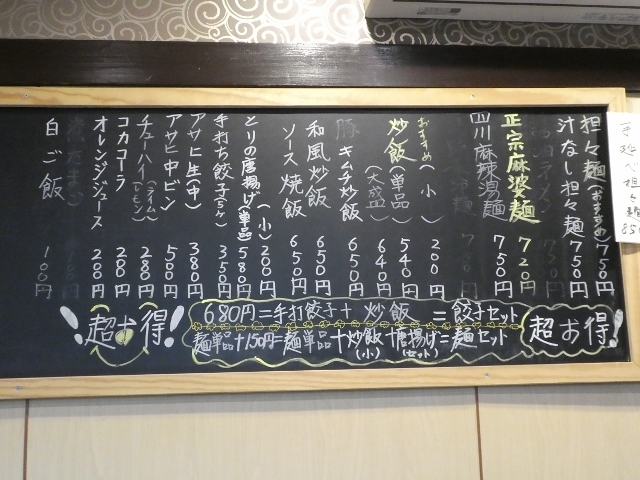 手延べ担々麺
担々麺(おすすめ) 750円
汁なし担々麺 750円
正宗麻婆麺 720円
四川麻辣湯麺 750円
おすすめ(小) 200円
炒飯(単品) 540円
(大盛) 640円
豚キムチ炒飯 650円
和風炒飯 650円
ソース焼飯 650円
(小) 200円
とりの唐揚げ(単品) 580円
手打ち餃子(5ヶ) 350円
アサヒ生(中) 380円
アサヒ中ビン 500円
チューハイ(ライム)(レモン) 280円
コカコーラ 200円
オレンジジュース 200円
白ご飯 100円
超お得!
680円=手打餃子+炒飯=餃子セット
麺単品+150円=麺単品+炒飯(小)+唐揚げ(セット)=麺セット
超お得!